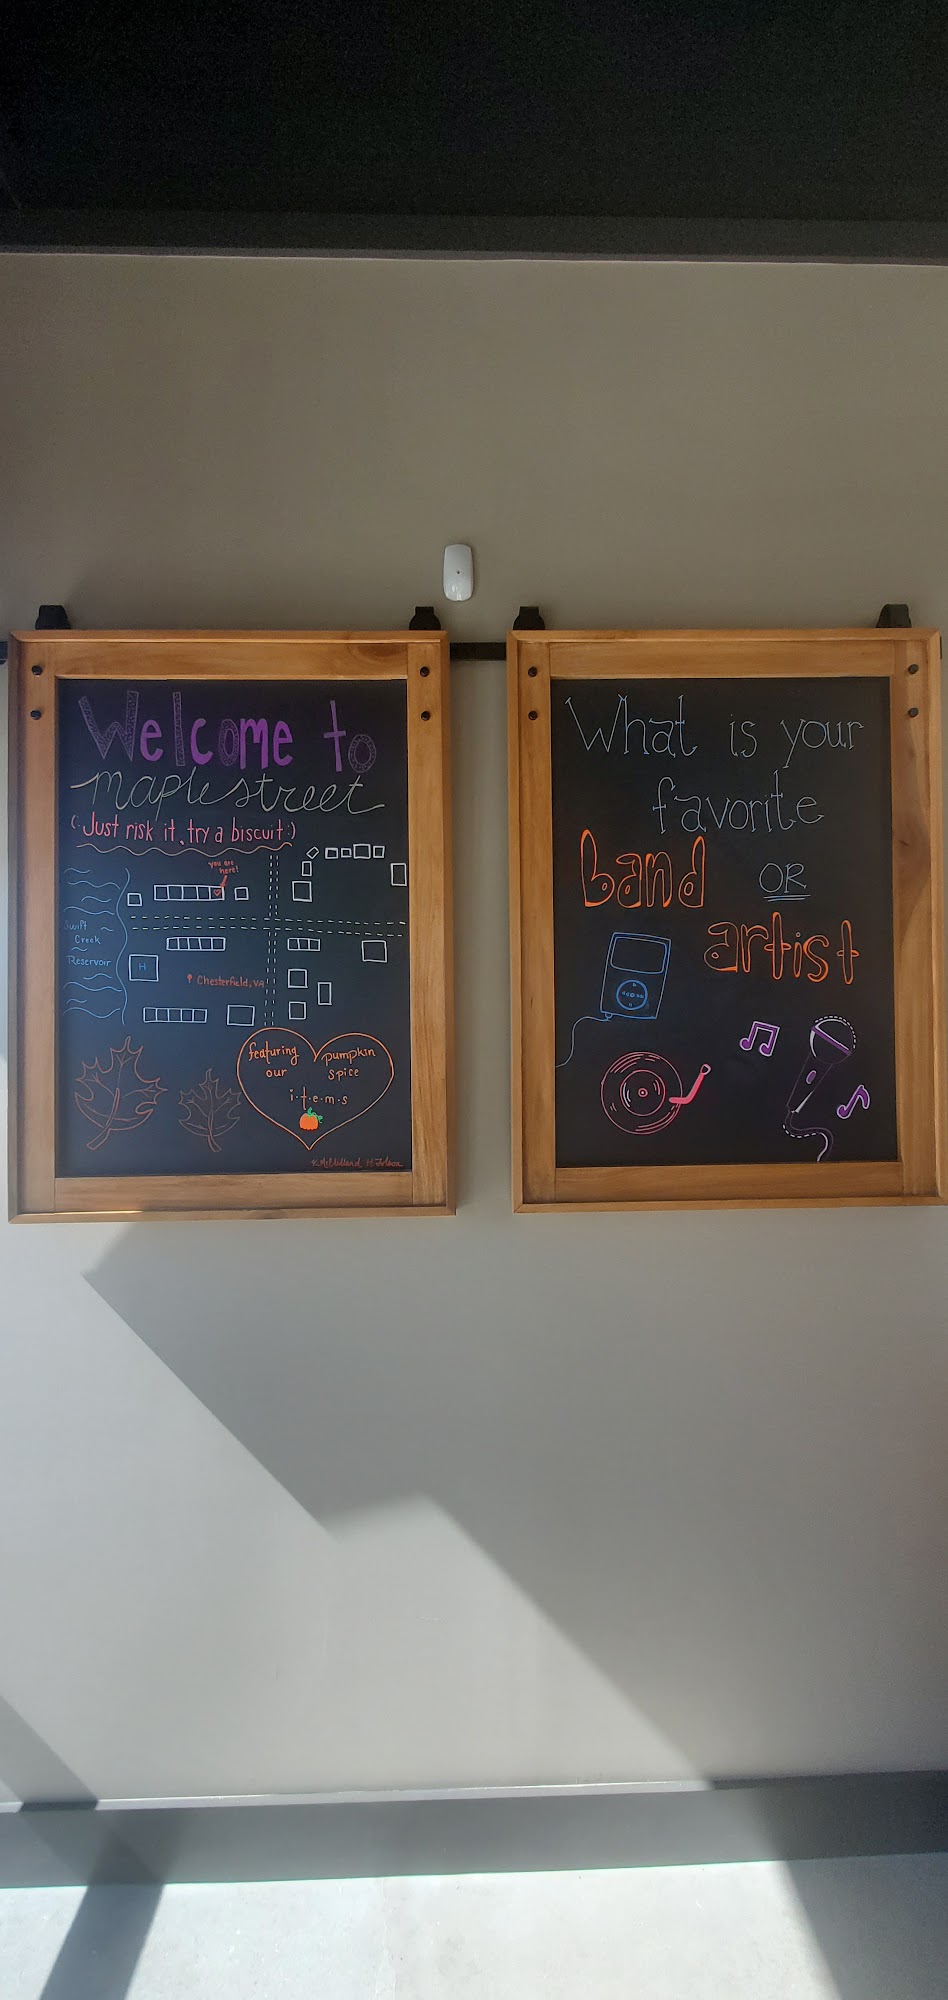 Welcome to
maple street
(: Just risk it, try a biscuit :)
you are
here!
Swift
Creek
Reservoir
H
Chesterfield, VA
featuring our
pumpkin spice
i·t·e·m·s
What is your
favorite
band OR
artist